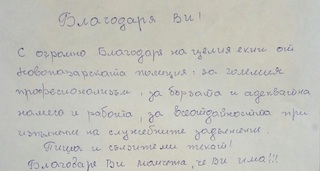 Благодаря Ви!
С огромно Благодаря на целия екип от
Новопазарската полиция: за големия
професионализъм, за бързата и адекватна
намеса и работа, за всеотдайността при
изпълнение на служебните задължения.
Пиша и
Благодаря Ви момчета, че Ви има!!!